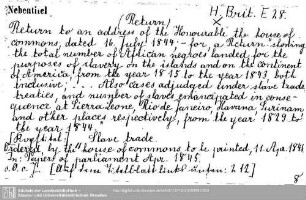 Nebentitel
H. Brit. E 28.
(Return)
Return to an address of the Honourable the house of
commons, dated 16. July 1844 - for, a Return showing
the total number of African negroes landed, for the
purposes of slavery on the islands and on the continent
of America, from the year 1815 to the year 1843 both
inclusive; - Also cases adjudged under slave trade
treaties and number of slaves emancipated in conse-
quence at Sierra Leone, Rio de Janeiro Havana Surinam
and other places respectively, from the year 1829 to
the year 1844.
Slave trade
Ordered by the house of commons to be printed, 11. Apr. 1845.
In: Papers of parliament Apr. 1845.
links unten: 212]
8°